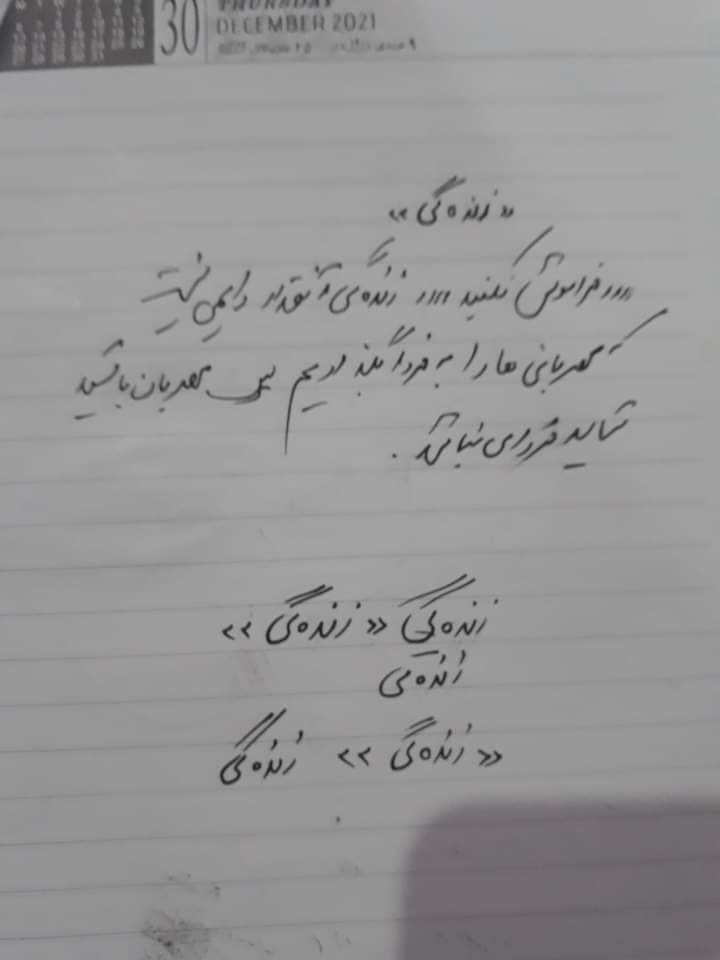 THURSDAY
30 DECEMBER 2021
« زنده‌گی »
,,,, فراموش نکنید ,,,, زنده‌گی آنقدر دایمی نیست
که مهربانی ها را به فردا بگذاریم پس مهربان باشید
شاید فردای نباشد .
زنده‌گی « زنده‌گی »
زنده‌گی
« زنده‌گی » زنده‌گی